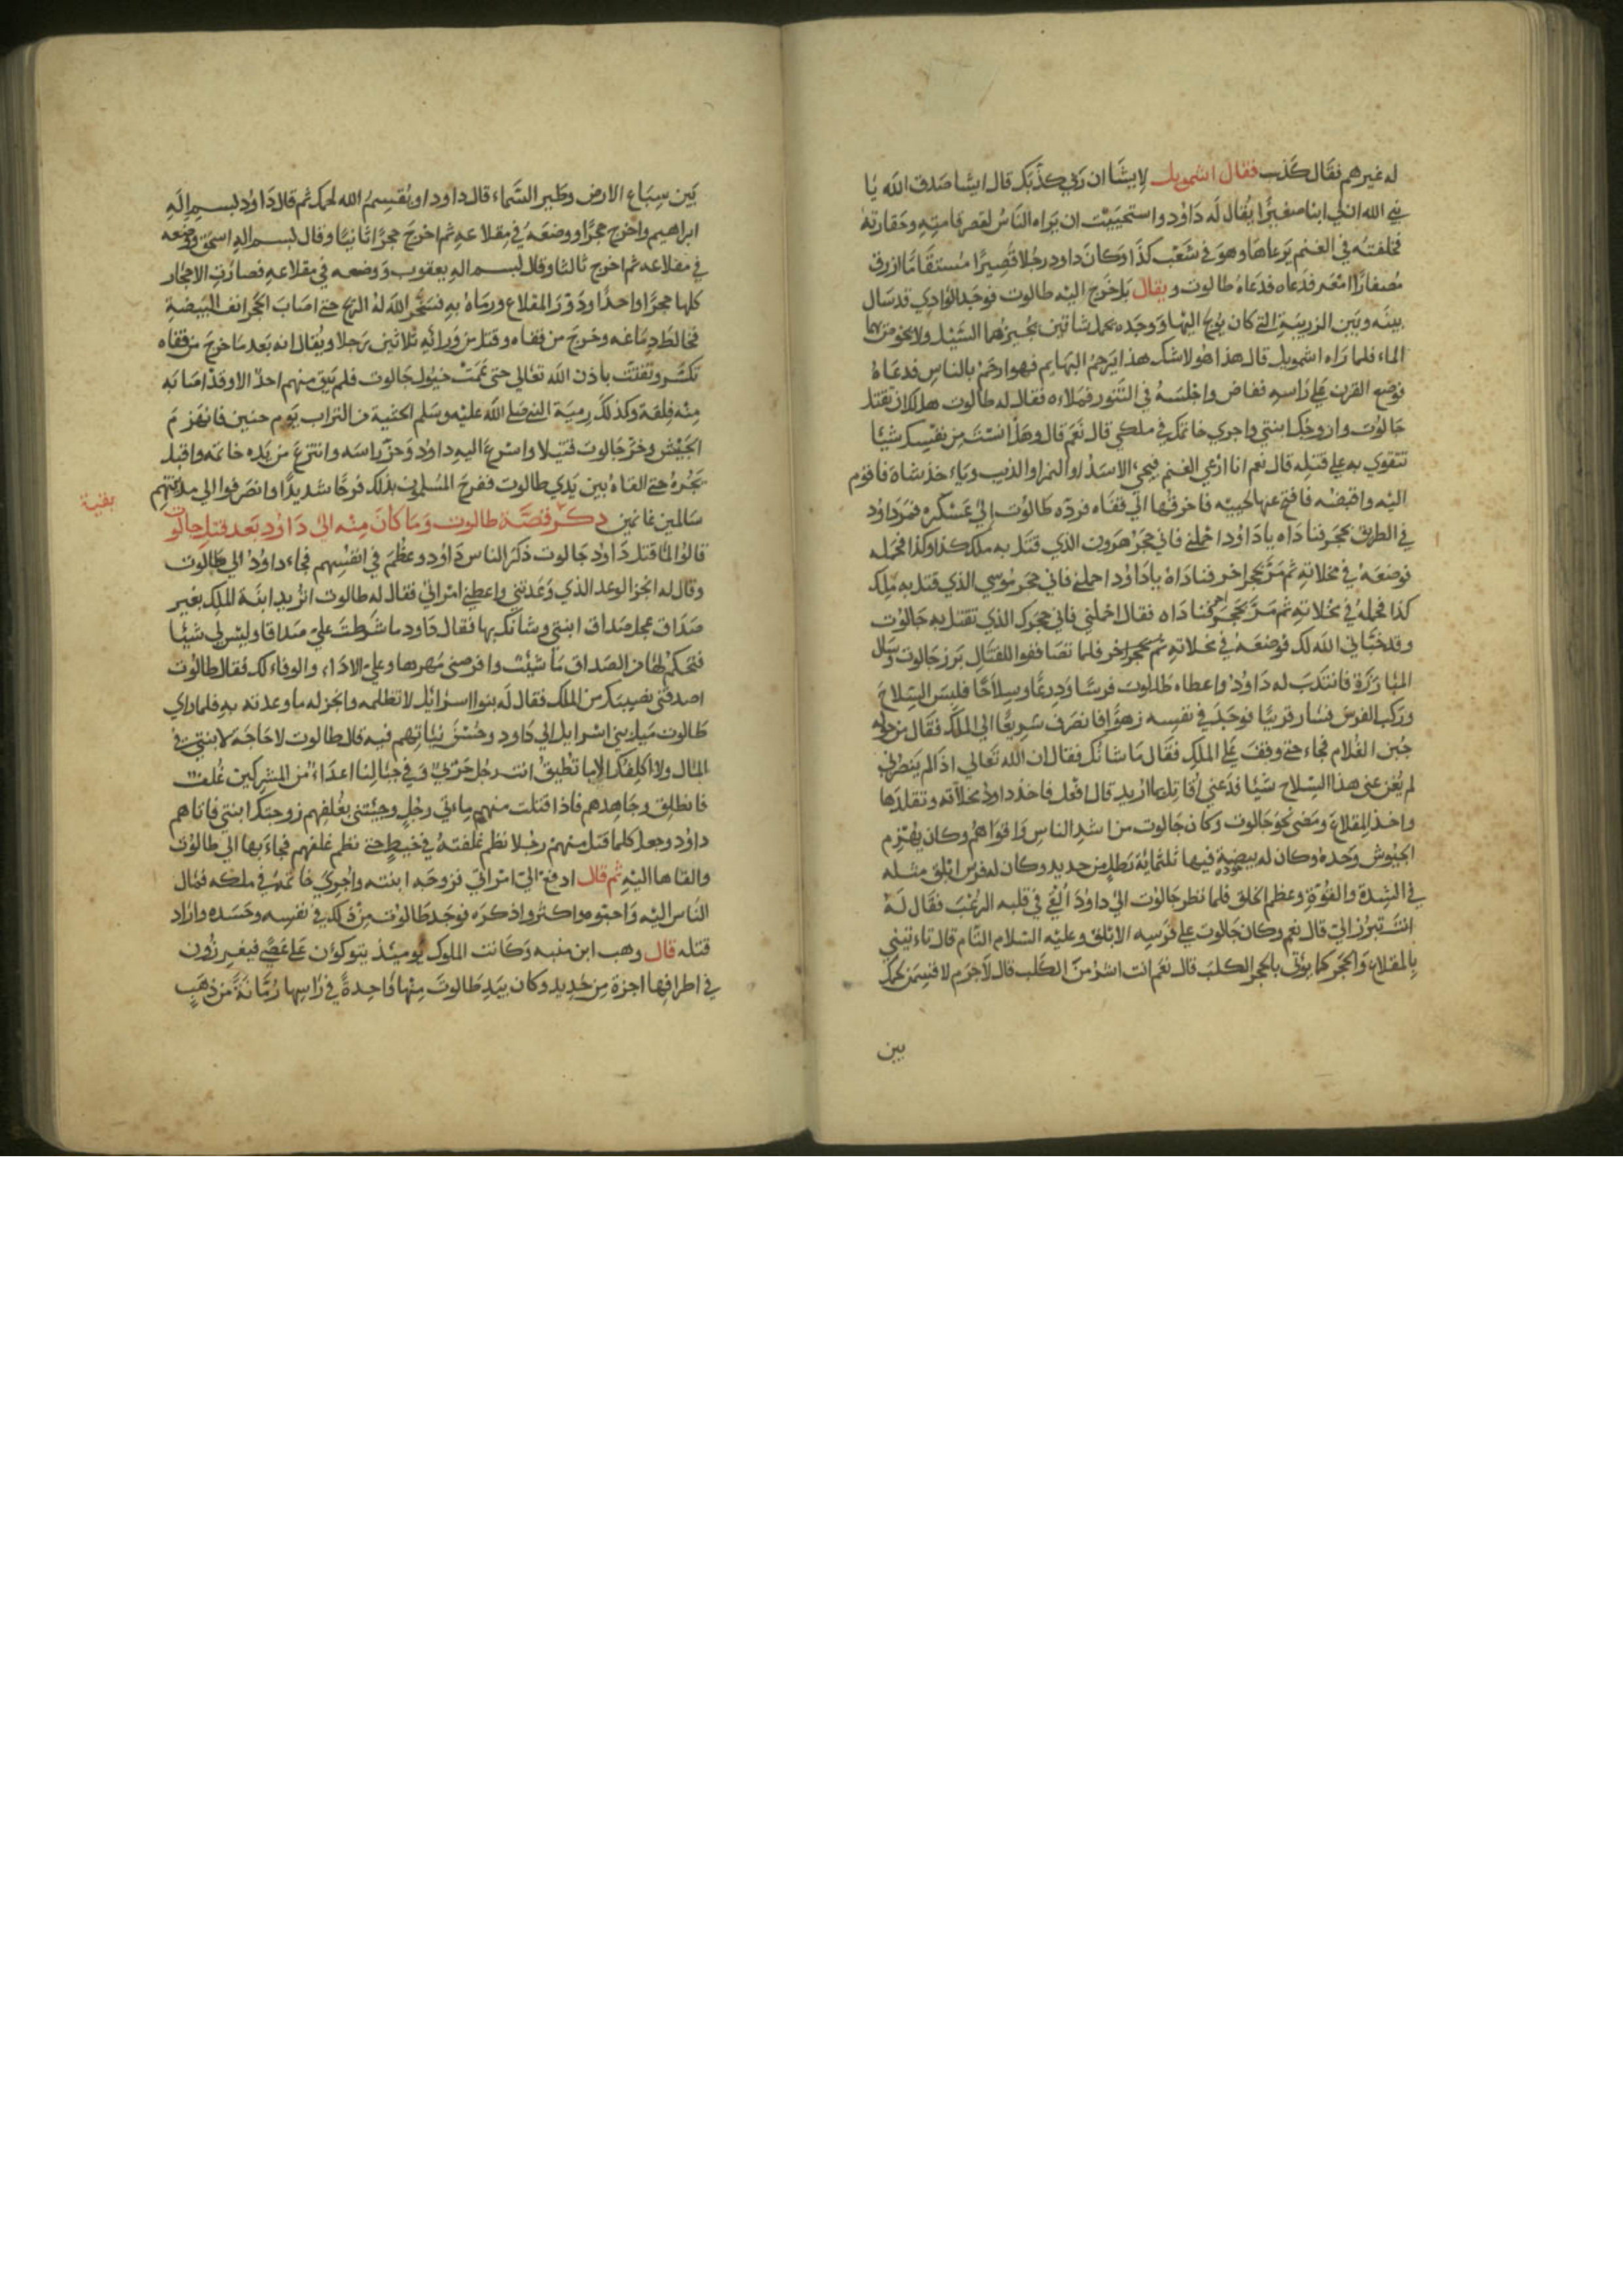 له غيرهم فقال كذب فقال اشمويل لايشا ان ربي كذبك قال ايشا صدق الله يا
نبي الله ان لي ابنا صغيرًا يُقال له داوُد واستحييت ان يراه الناسُ لقصر قامته وحقارته
فخلفته في الغنم يرعاها وهو في شعب كذا وكان داود رجُلا قصيرًا مستقامًا ازرق
مصفارًا امعر فدعاه فدعاهُ طالوت ويقال بل خرج اليه طالوت فوجد الوادي قد سال
بينه وبين الزريبة التي كان يريح اليها ووجده يحمل شاتين يجيزهما السيل ولا يخوض بهما
الماء فلما راه اشمويل قال هذا هو لاشك هذا يرحم البهايم فهو ارحم بالناس فدعاهُ
فوضع القرن على راسه ففاض واجلسه في التنور فملاءه فقال له طالوت هل لك ان تقتل
جالوت وازوجك ابنتي واجري خاتمك في ملكي قال نعم قال وهل انست من نفسك شيئا
تتقوي به على قتله قال نعم انا ارعي الغنم فيجيء الاسد او النمر او الذيب وياءخذ شاة فاقوم
اليه واقبضه فافتح عنها لحييه فاخرقها الي قفاه فرده طالوت الي عسكره فمر داوُد
في الطريق بحجر فناداه يا داوُد احملني فاني حجر هرون الذي قتل به ملك كذا وكذا فحمله
فوضعه في مخلاته ثم مر بحجر اخر فناداه يا داوُد احملني فاني حجر موسي الذي قتل به ملك
كذا فحمله في مخلاته ثم مر بحجر اخر فناداه فقال احملني فاني حجرك الذي تقتل به جالوت
وقد خباني الله لك فوضعه في مخلاته ثم بحجر اخر فلما تصاففوا للقتال برز جالوت وسال
المبارزة فانتدب له داوُد واعطاه طالوت فرسًا ودرعًا وسلاحًا فلبس السلاح
وركب الفرس فسار قريبًا فوجد في نفسه زهوًا فانصرف سريعًا الي الملك فقال من حوله
جبن الغلام فجاء حتي وقف على الملك فقال ما شانك فقال ان الله تعالي اذا لم ينصرني
لم يُغن عني هذا السلاح شيئا فدعني اُقاتل بما اُريد قال افعل فاخذ داود مخلاته وتقلدها
واخذ المقلاع ومضي نحو جالوت وكان جالوت من اشد الناس واقواهم وكان يهزم
الجيوش وحده وكان له بيضة فيها ثلثمائة رطل من حديد وكان له فرس ابلق مثله
في الشدة والقُوة وعظم الخلق فلما نظر جالوت الي داود القي في قلبه الرعب فقال له
انت تبرز الي قال نعم وكان جالوت على فرسه الابلق وعليه السلام التام قال تاءتيني
بالمقلاع والحجر كما يؤتي بالحجر الكلب قال نعم انت اشر من الكلب قال لاجرم لاقسمن لحمك
بين
بين سباع الارض وطير السماء قال داود او يُقسم الله لحمك ثم قال داوُد بسم اله
ابراهيم واخرج حجرًا ووضعه في مقلاعه ثم اخرج حجرًا ثانيًا وقال بسم اله اسحق ووضعه
في مقلاعه ثم اخرج ثالثا وقال بسم اله يعقوب ووضعه في مقلاعه فصارت الاحجار
كلها حجرًا واحدًا ودور المقلاع ورماه به فسخر الله له الريح حتي اصاب الحجر انف البيضة
فخالط دماغه وخرج من قفاه وقتل من ورائه ثلاثين رجلا ويُقال انه بعد ما خرج من قفاه
تكسر وتفتت باذن الله تعالي حتي عمت خيول جالوت فلم يبق منهم احد الا وقد اصابه
منه فلقة وكذلك رمية النبي صلى الله عليه وسلم الحثية من التراب يوم حنين فانهزم
الجيش وخر جالوت قتيلا واسرع اليه داوُد وحز راسه وانتزع من يده خاتمه واقبل
يجره حتي القاه بين يدي طالوت ففرح المسلمون بذلك فرحًا شديدًا وانصرفوا الي مدينتهم
بقية
سالمين غانمين ذكر قصة طالوت وما كان منه الي داوُد بعد قتل جالوت
قالوا لما قتل داود جالوت ذكر الناس داوُد وعظم في انفسهم فجاء داوُد الي طالوت
وقال له انجز الوعد الذي وعدتني واعطني امراتي فقال له طالوت اتُريد ابنة الملك بغير
صداق عجل صداق ابنتي وشانك بها فقال داود ما شرطت علي صداقا وليس لي شيئا
فتحكم لها من الصداق ما شئت وافرضي مهرها وعلي الاداء والوفاء لك فقال طالوت
اصدقني نصيبك من الملك فقال له بنوا اسرائيل لا تظلمه وانجز له ما وعدته به فلما راي
طالوت ميل بني اسرايل الي داود وحسن نيّاتهم فيه قال طالوت لا حاجة لابنتي في
المال ولا اكلفك الا ما تطيق انت رجل حربي وفي جبالنا اعداء من المشركين غلف
فانطلق وجاهدهم فاذا قتلت منهم ماءتي رجل وجئتني بغلفهم زوجتك ابنتي فاتاهم
داوُد وجعل كلما قتل منهم رجلا نظم غلفته في خيط حتي نظم غلفهم فجاء بها الي طالوت
والقاها اليه ثم قال ادفع الي امراتي فزوجه ابنته واجري خاتمه في ملكه فمال
الناس اليه واحبوه واكثروا ذكره فوجد طالوت من ذلك في نفسه وحسده واراد
قتله قال وهب ابن منبه وكانت الملوك يومئذ يتوكؤن على عصي فيغيرزون
في اطرافها اجزة من حديد وكان بيد طالوت منها واحدة في راسها رُمّانة من ذهب